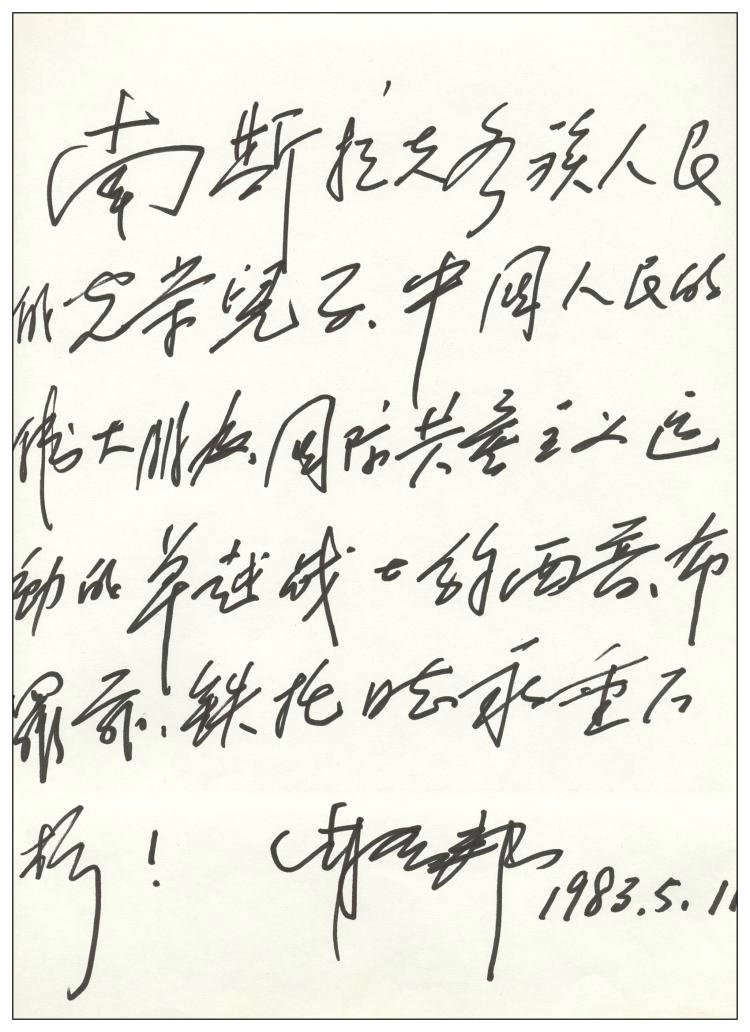 南斯拉夫各族人民
的光荣儿子、中国人民的
伟大朋友、国际共产主义运
动的卓越战士约西普、布
罗兹、铁托同志永垂不
朽!
胡耀邦 1983.5.11